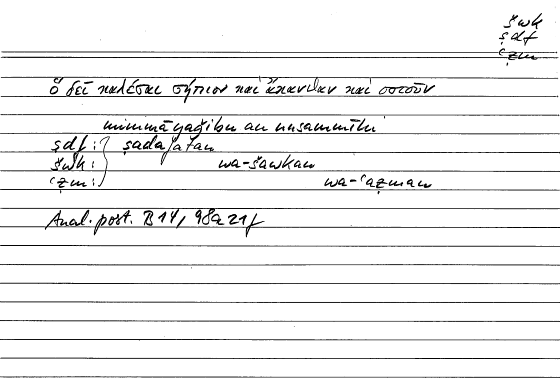 šwk
ṣdf
ʿẓm
ὃ δεῖ καλέσαι σήπιον καὶ ἄκανθαν καὶ ὀστοῦν
mimmā yaǧibu an nusammīhi
ṣdf: ṣadafatan
šwk: wa-šawkan
ʿẓm: wa-ʿaẓman
Anal. post. B 14, 98a21f